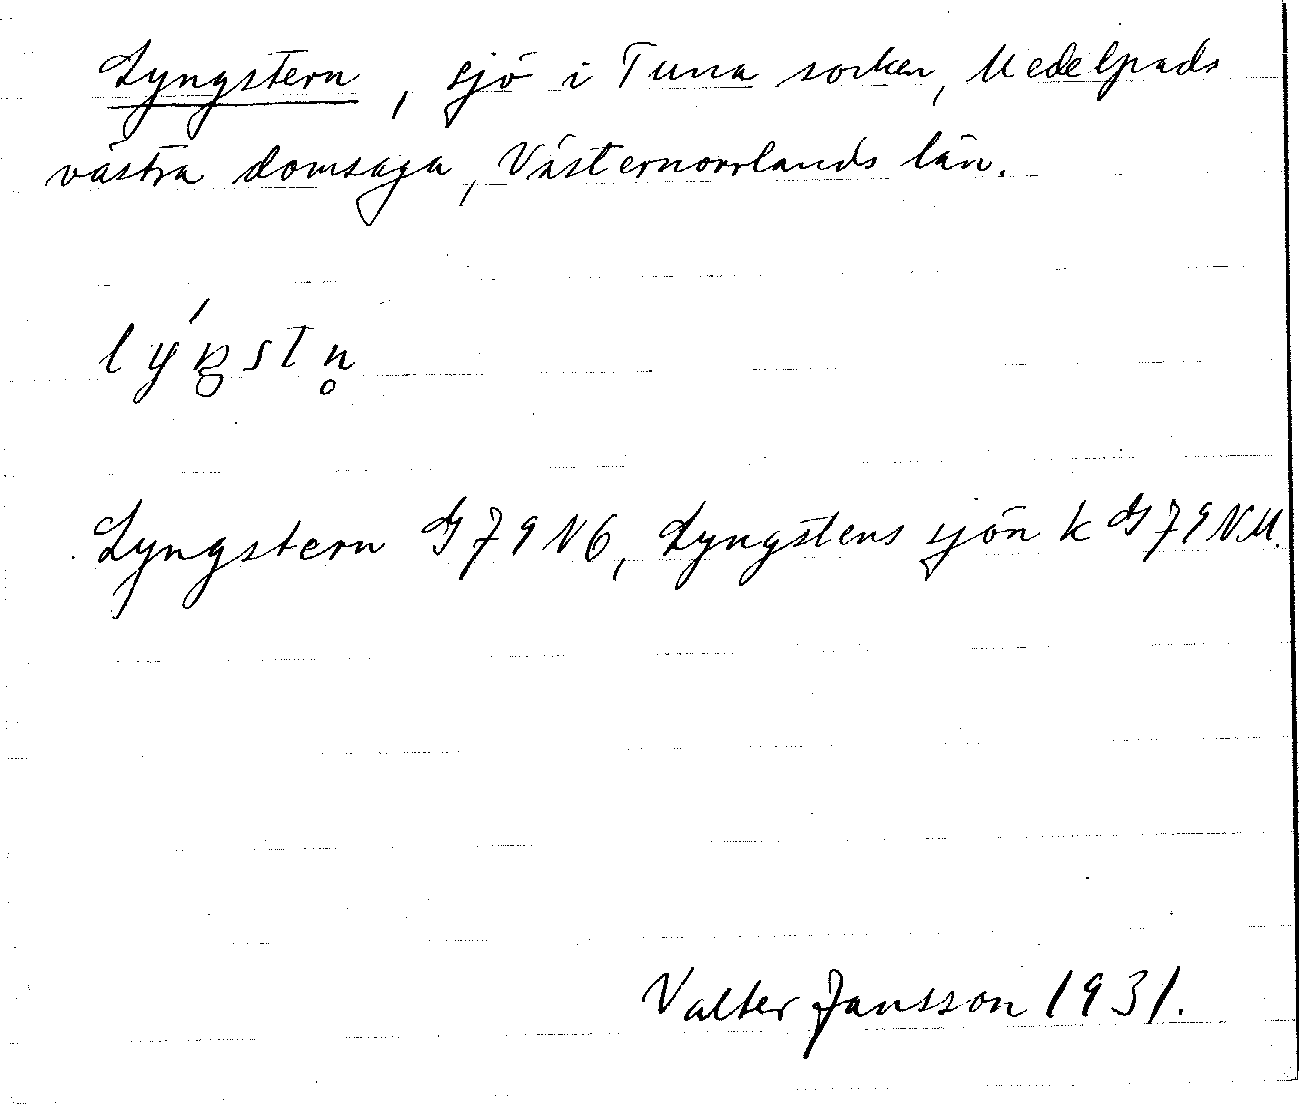 Lyngstern, sjö i Tuna socken, Medelpads
västra domsaga, Västernorrlands län.
lýŋstn̥
Lyngstern G 79 N6, Lyngstens sjön k G 79 NM.
Valter Jansson 1931.